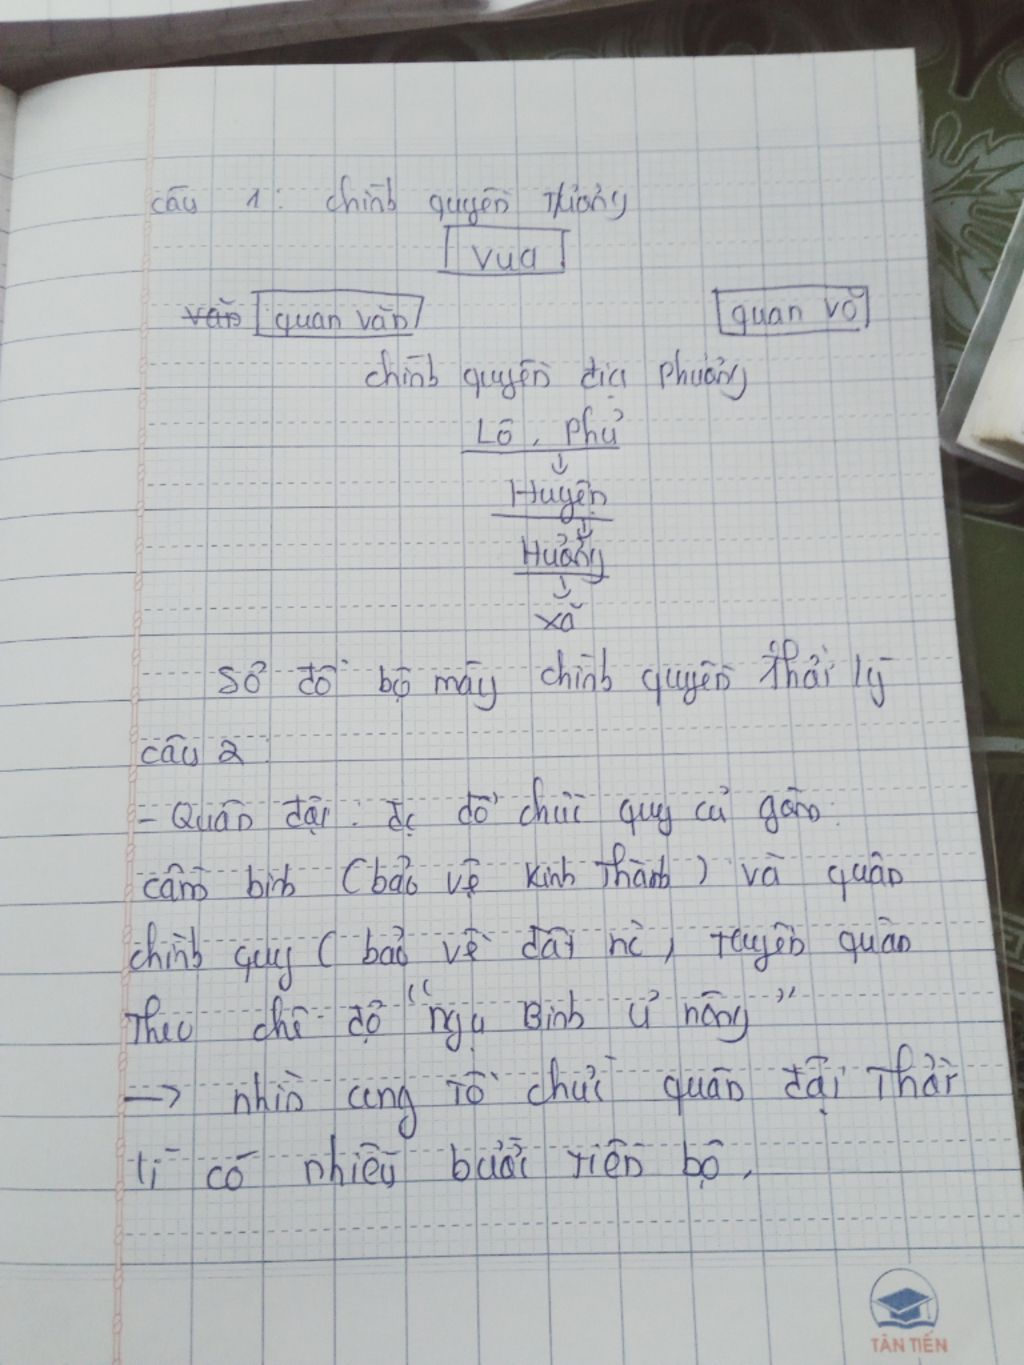 Câu 1: chính quyền Tưởng
Vua
văn quan văn quan võ
chính quyền địa phương
Lộ, Phủ
↓
Huyện
↓
Hương
↓
xã
sơ đồ bộ máy chính quyền thời lý
câu 2
- Quân đội: đc đổ chức quy củ gồm:
cấm binh (bảo vệ kinh thành) và quân
chính quy (bảo vệ đất nc, tuyển quân
Theo chế độ "ngụ Binh ư nông"
→ nhìn cung tổ chức quân đội Thời
lí có nhiều bước tiến bộ.
TÂN TIẾN